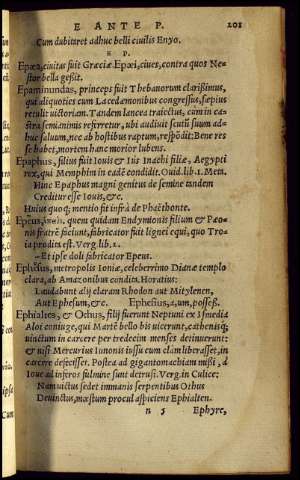 E ANTE P. 201
Cum dubitaret adhuc belli ciuilis Enyo.
E P.
Epæa, ciuitas fuit Græciæ Epæi, ciues, contra quos Ne-
stor bella gessit.
Epaminundas, princeps fuit Thebanorum clarißimus,
qui aliquoties cum Lacedæmonibus congressus, sæpius
retulit victoriam. Tandem lancea traiectus, cùm in ca-
stra semianimis referretur, ubi audiuit scutũ suum ad-
huc saluum, nec ab hostibus raptum, respõdit: Bene res
se habet, moriar: hanc morior lubens.
Epaphus, filius fuit Iouis & Iüs Inachi filiæ, Aegypti
rex, qui Memphim in eadẽ condidit. Ouid. lib. 1. Met.
Hinc Epaphus magni genitus de semine tandem
Creditur esse Iouis, &c.
Huius quoq; mentio fit infrà de Phaëthonte.
Epeus, quem quidam Endymionis filium & Pæo-
nis fratrẽ faciunt, fabricator fuit lignei equi, quo Tro
ia prodita est. Verg. lib. 2.
– Et ipse doli fabricator Epeus.
Ephesus, metropolis Ioniæ, celeberrimo Dianæ templo
clara, ab Amazonibus condita. Horatius:
Laudabunt alij claram Rhodon aut Mitylenen,
Aut Ephesum, &c. Ephesius, a, um, posseß.
Ephialtes, & Othus, filij fuerunt Neptuni ex Iſmedia
Aloi coniuge, qui Martẽ bello bis uicerunt, cathenisq;
uinctum in carcere per tredecim menses detinuerunt:
& nisi Mercurius Iononis iussu eum clàm liberasset, in
carcere defecisset. Postea ad gigantomachiam mißi, à
Ioue ad inferos fulmine sunt detrusi. Verg. in Culice:
Nam uictus sedet immanis serpentibus Othus
Deuinctus, mœstum procul aspiciens Ephialten.
n 5 Ephyre,